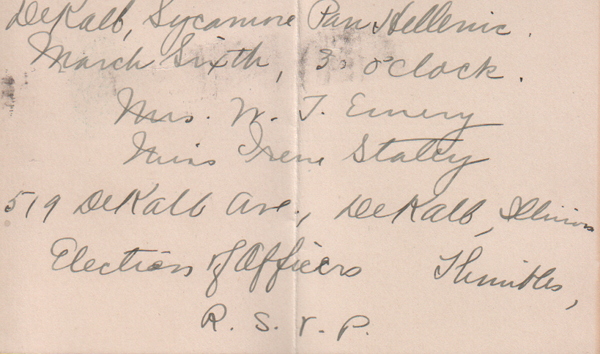 DeKalb, Sycamore Pan Hellenic.
March Sixth, 3 o'clock.
Mrs. W. T. Emery
Miss Irene Staley
519 DeKalb Ave., DeKalb, Illinois
Election of Officers Thimbles,
R. S. V. P.